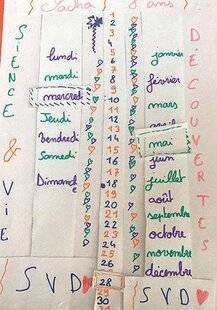 Sacha 8 ans
SIENCE & VIE
lundi
mardi
mercredi
Jeudi
Vendredi
Samedi
Dimanche
1
2
3
4
5
6
7
8
9
10
11
12
13
14
15
16
17
18
19
20
21
22
23
24
25
26
28
29
30
janvier
février
mars
avril
mai
juin
juillet
août
septembre
octobre
novembre
décembre
DÉCOUVERTES
SVD
SVD